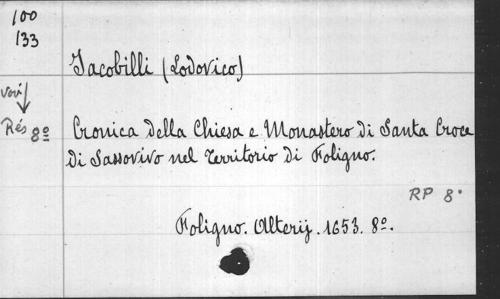 100
133
Jacobilli (Lodovico)
voir
Rés 8º
Cronica della Chiesa e Monastero di Santa Croce
di Sassovivo nel Territorio di Foligno.
RP 8º
Foligno. Alterij. 1653. 8º.